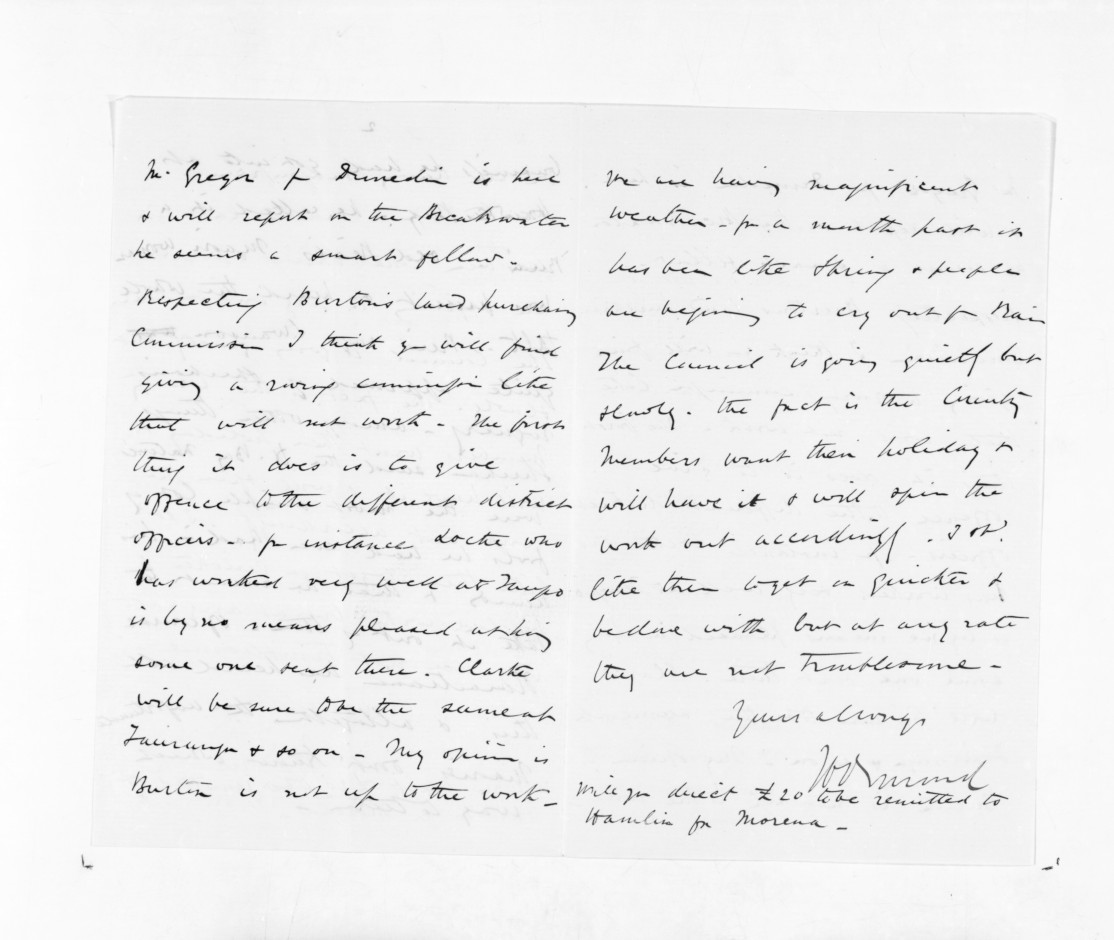 Mr. Gregor fr Dunedin is here
& will report on the Breakwater
he seems a smart fellow -
Respecting Burton's land purchasing
Commission I think yu will find
giving a roving commission like
that will not work - The first
thing it does is to give
offence to the different district
officers - fr instance Locke who
has worked very well at Taupo
is by no means pleased at
some one sent there. Clarke
will be sure to be the same at
Tauranga & so on - My opinion is
Burton is not up to the work -
2
We are having magnificent
weather - fr a month past it
has been like Spring & people
are begining to cry out fr Rain
The Council is going quietly but
slowly. The fact is the Country
Members want their holiday &
will have it & will spin the
work out accordingly. I wd.
like them to get on quicker &
be done with but at any rate
they are not troublesome -
Yours always
JD Ormond
Will yu direct £20 to be remitted to
Hamlin for Morena -